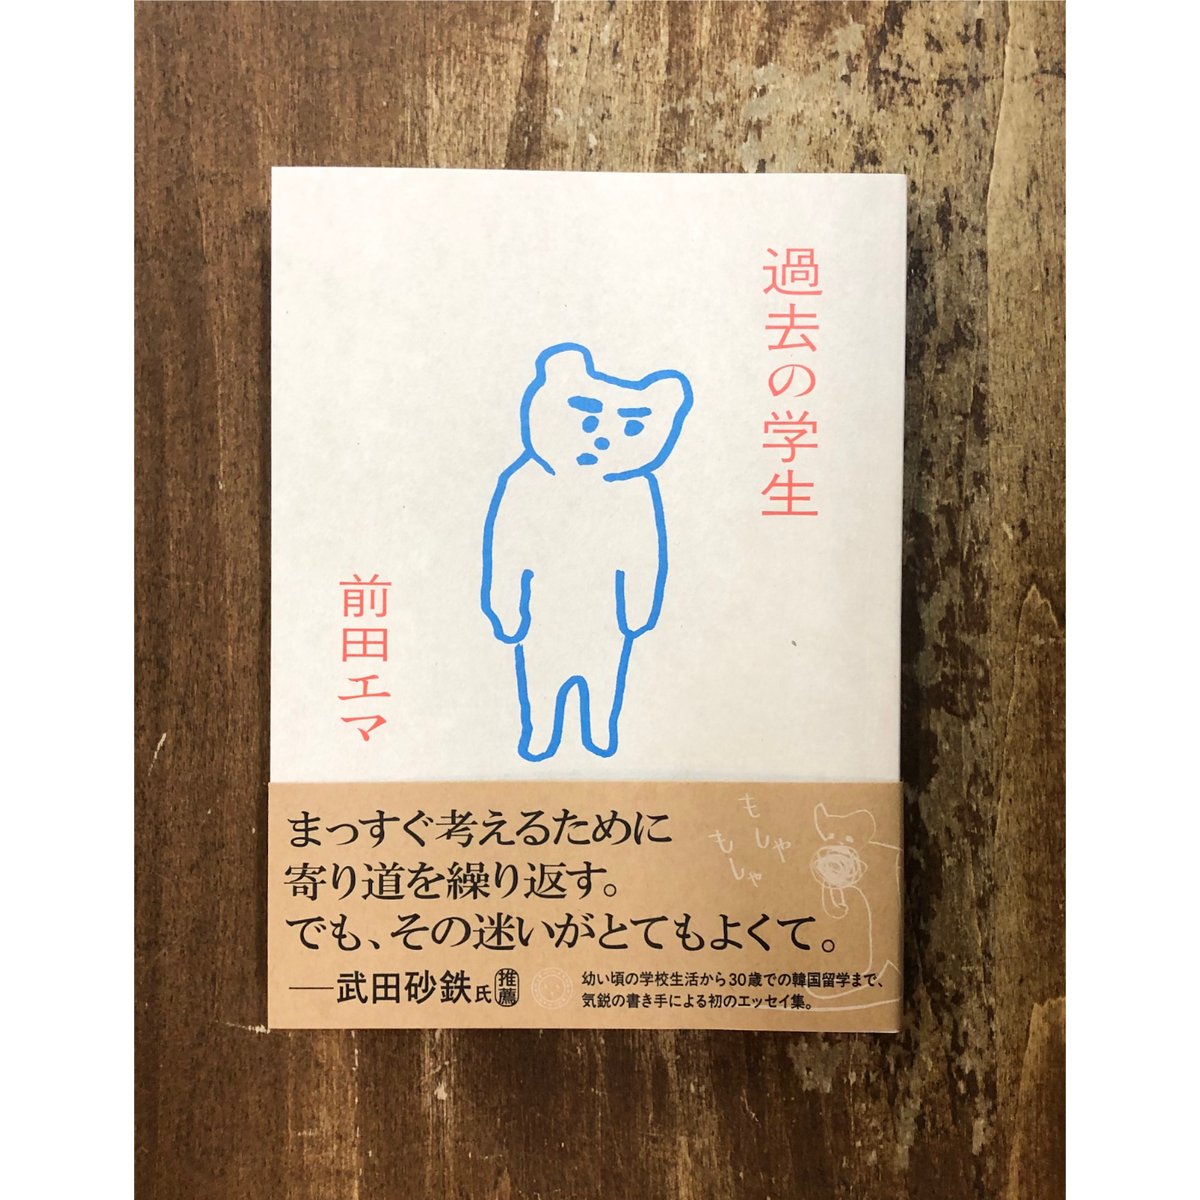 過去の学生
前田エマ
まっすぐ考えるために
寄り道を繰り返す。
でも、その迷いがとてもよくて。
──武田砂鉄氏推薦
もしゃ
もしゃ
幼い頃の学校生活から30歳での韓国留学まで、
気鋭の書き手による初のエッセイ集。